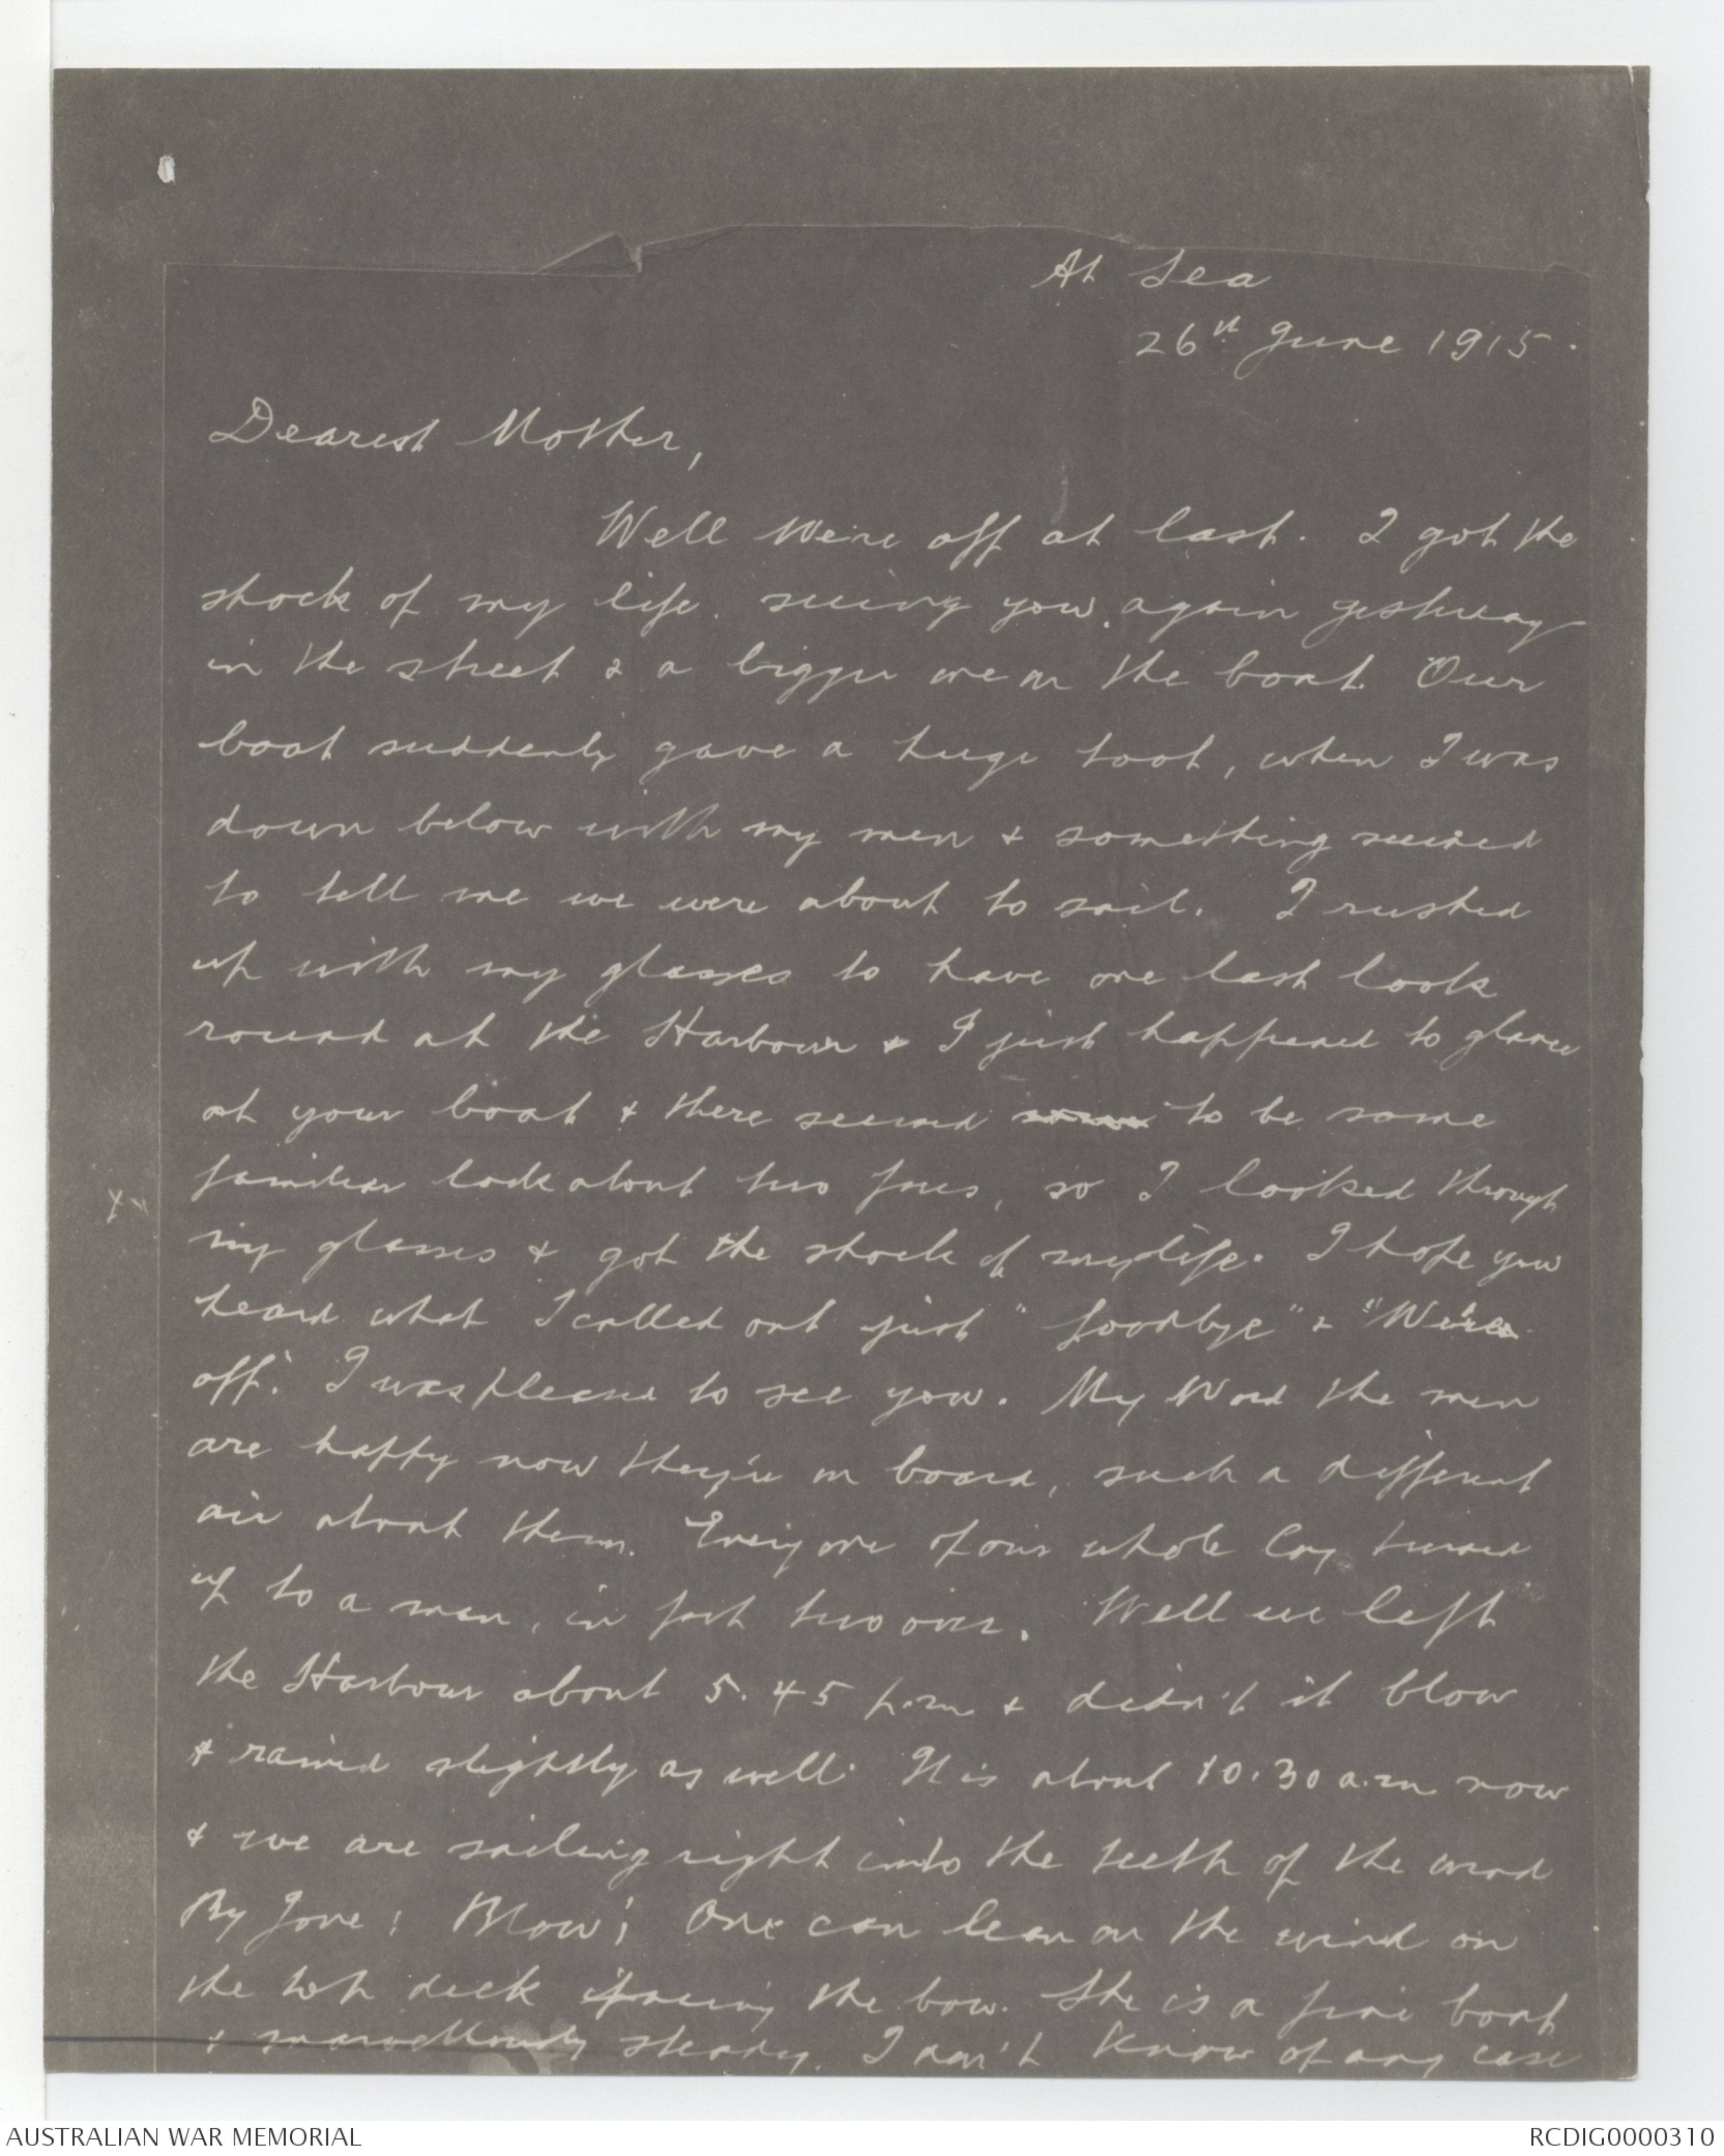 At Sea
26th June 1915.
Dearest Mother,
Well We're off at last. I got the
shock of my life. seeing you again yesterday
in the street & a bigger one on the boat. Our
boat suddenly gave a huge toot, when I was
down below with my men & something seemed
to tell me we were about to sail. I rushed
up with my glasses to have one last look
round at the Harbour & I just happened to glance
at your boat & there seemed to be some
familiar look about two faces, so I looked through
my glasses & got the shock of my life. I hope you
heard what I called out just "Goodbye" & "We're
off". I was pleased to see you. My Word the men
are happy now they're on board, such a different
air about them. Every one of our whole Coy turned
up to a man, in fact two over. Well we left
the Harbour about 5.45 p.m & didn't it blow
& rained slightly as well. It is about 10.30 a.m now
& we are sailing right into the teeth of the wind
By Jove! Blow! One can lean on the wind on
the top deck facing the bow. She is a fine boat
& marvellously steady. I don't know of any case
AUSTRALIAN WAR MEMORIAL
RCDIG0000310